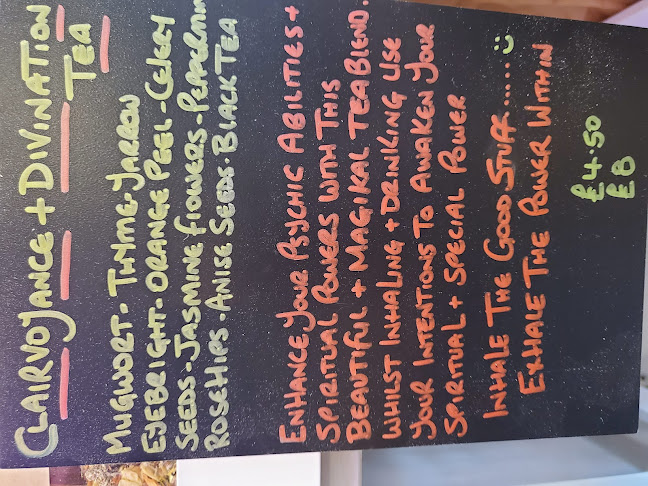 CLAIRVOYANCE + DIVINATION
TEA
MUGWORT - THYME - YARROW
EYEBRIGHT - ORANGE PEEL - CELERY
SEEDS - JASMINE FLOWERS - PEPPERMINT
ROSEHIPS - ANISE SEEDS - BLACK TEA
ENHANCE YOUR PSYCHIC ABILITIES +
SPIRITUAL POWERS WITH THIS
BEAUTIFUL + MAGIKAL TEA BLEND.
WHILST INHALING + DRINKING USE
YOUR INTENTIONS TO AWAKEN YOUR
SPIRTUAL + SPECIAL POWER
INHALE THE GOOD STUFF......
EXHALE THE POWER WITHIN
£4.50
£8